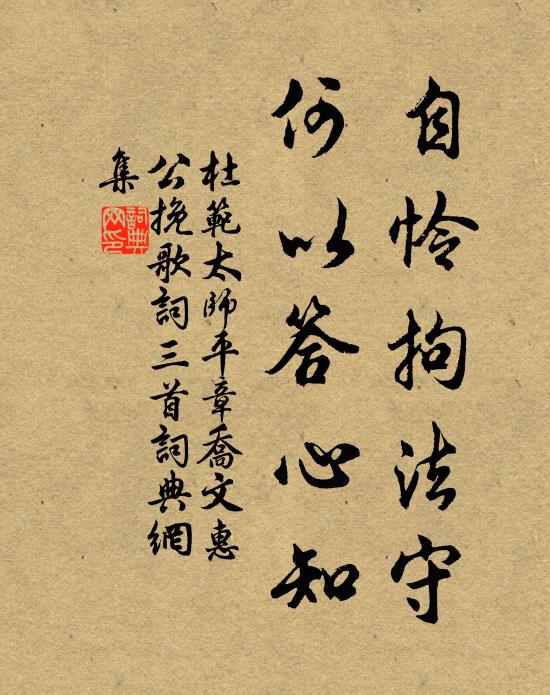 自怜拘法守
何以答心知
杜範太師平章喬文惠
公挽歌詞三首詞典網
集
詞典网印